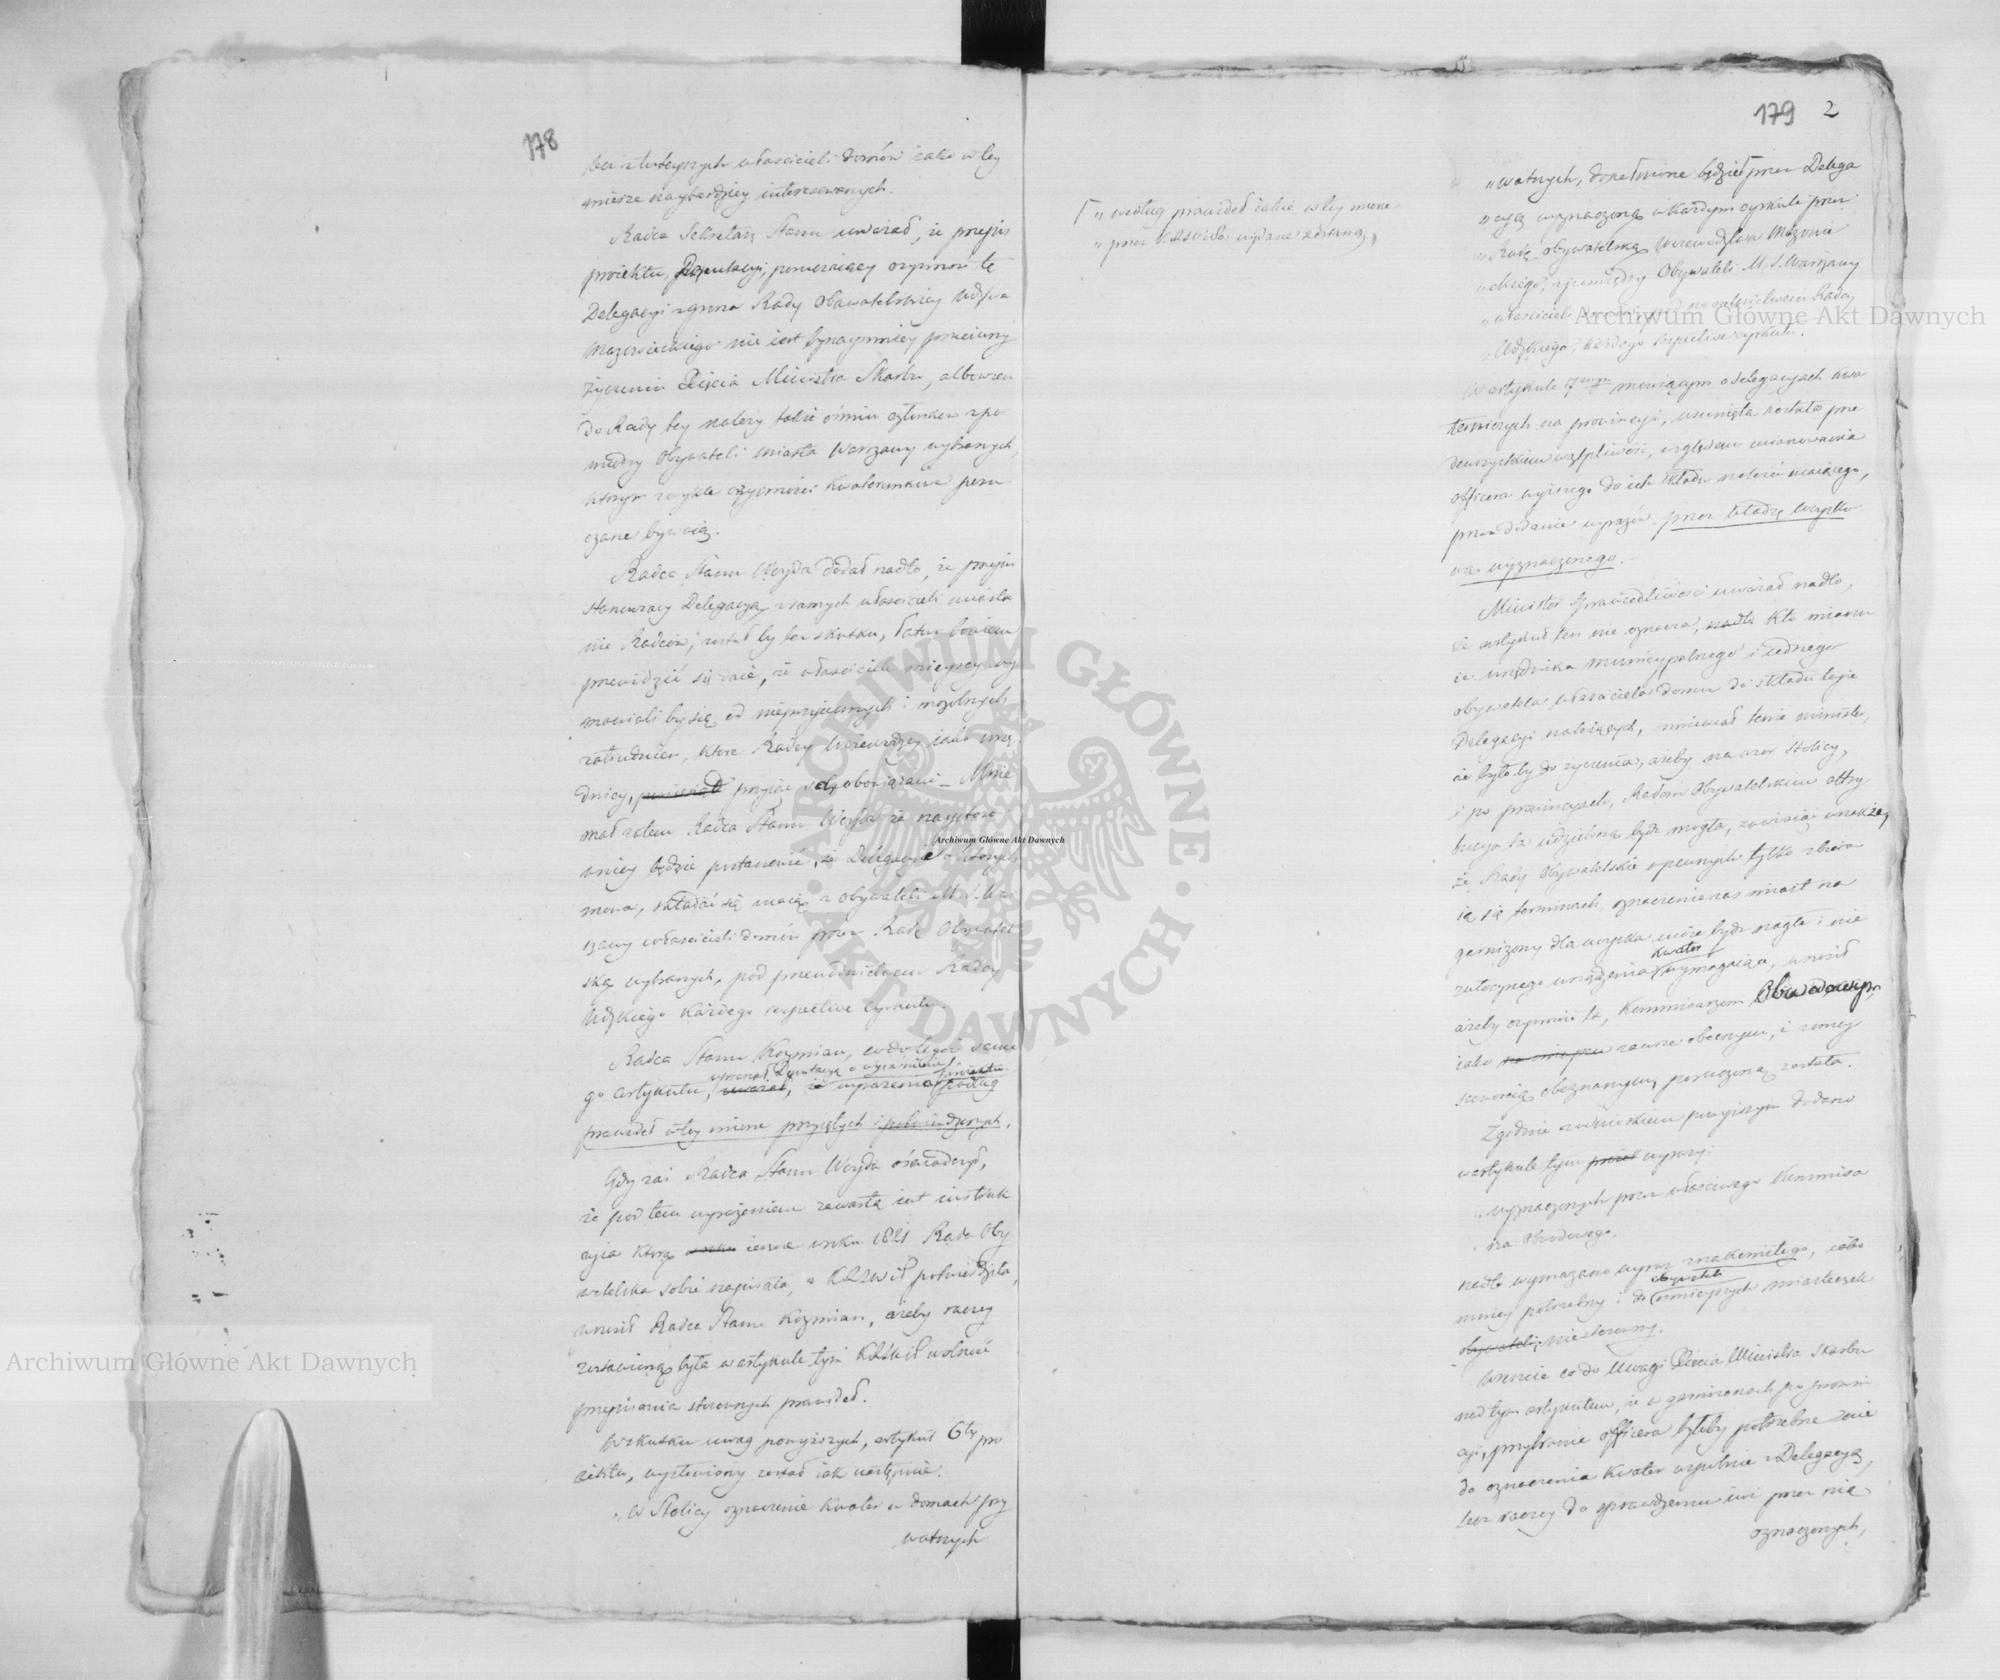 178
ści z tuteyszych właścicieli domów iako w tey
mierze naybardziey interesowanych.
Radca Sekretarz Stanu uważał, że przepis
proiektu Deputacyi, powierzaiący czynność tę
Delegacyi z grona Rady Obywatelskiey Wdztwa
Mazowieckiego nie iest bynaymniey przeciwny
życzeniu Xięcia Ministra Skarbu, albowiem
do Rady tey należy także ośmiu członków z po
między Obywateli miasta Warszawy wybranych,
którym zwykle czynności kwaterunkowe poru
czane bywaią.
Radca Stanu Woyda dodał nadto, że przepis
stanowiący Delegacyą z samych właścicieli miasta
nie Radców, zostałby bez skutku, łatwo bowiem
przewidzić się daie, że właściciele mieyscy wy
mawialiby się od nieprzyiemnych i mozolnych
zatrudnień, które Radcy Woiewódzcy iako urzę
dnicy, przyiąć są obowiązani – Mnie
mał zatem Radca Stanu Woyda że naystoso
wniey będzie postanowić, że Delegacye o których
mowa, składać się maią z Obywateli M. S. War
szawy właścicieli domów przez Radę Obywatel
ską wybranych, pod przewodnictwem Radcy
Wdzkiego każdego respective cyrkułu.
Radca Stanu Kozmian, co do tegoż same
wezwał Deputacyą o wyjaśnienie
go artykułu, uważał, że wyrażenia podług
prawideł w tey mierze przyiętych i potwierdzonych.
Gdy zaś Radca Stanu Woyda oświadczył,
że pod tem wyrażeniem zawarta iest instruk
cyia którą ieszcze w roku 1821 Rada Oby
watelska sobie napisała, a KRSWiP potwierdziła,
wnosił Radca Stanu Kozmian, ażeby raczey
zostawioną była w artykule tym KRSWiP wolność
przepisania stosownych prawideł.
W skutku uwag powyższych, artykuł 6ty pro
iektu, wystawiony został iak następuie.
„W Stolicy oznaczenie kwater w domach pry
watnych
179 2
„według prawideł iakie w tey mierze
„przez KRSWiP wydane zostaną,
„watnych, dopełnione będzie przez Delega
„cyą wyznaczoną w każdym cyrkule przez
„Radę Obywatelską Woiewództwa Mazowie
„ckiego, z pomiędzy Obywateli M. S. Warszawy
„właścicieli domów, pod przewodnictwem Radcy
„Wdzkiego, każdego respective cyrkułu.
W artykule 7mym mówiącym o delegacyiach kwa
terniczych na prowincyi, usunięta została prze
dewszystkiem wątpliwość, względem mianowania
officera wyższego do ich składu należeć maiącego,
przez dodanie wyrazów, przez władzę woysko
wą wyznaczonego.
Minister Sprawiedliwości uważał nadto,
że artykuł ten nie oznacza, kto mianu
ie urzędnika municypalnego i iednego
obywatela właściciela domu do składu teyże
Delegacyi należących, mniemał tenże minister,
że byłoby do życzenia, ażeby na wzór stolicy,
i po prowincyach, Radom Obywatelskim attry
bucya ta udzieloną bydź mogła, zważaiąc wszakże,
że Rady Obywatelskie w pewnych tylko zbiera
ią się terminach, oznaczenie zaś miast na
garnizony dla woyska może bydź nagłe i nie
kwater
zwłocznego urządzenia wymagaiące, wnosił
ażeby czynność ta, Kommissarzom Obwodowym,
iako zawsze obecnym, i z miey
scowością obeznanym, poruczoną została.
Zgodnie z wnioskiem powyższym dodano
w artykule tym wyrazy:
„wyznaczonych przez właściwego Kommissa
„rza Obwodowego.
nadto wymazano wyraz znakomitego, iako
obywatela
mniey potrzebny i do miasteczek
obywateli, niestosowny.
Wreszcie co do uwagi Xięcia Ministra Skarbu
nad tym artykułem, że w garnizonach po prowin
cyi, przybranie officera byłoby potrzebne nie
do oznaczenia kwater wspólnie z Delegacyą,
lecz raczey do sprawdzenia iuż przez nią
oznaczonych,
Archiwum Główne Akt Dawnych
Archiwum Główne Akt Dawnych
Archiwum Główne Akt Dawnych
ARCHIWUM GŁÓWNE · AKT DAWNYCH ·